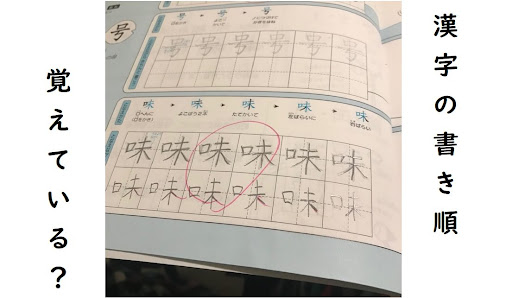 漢字の書き順
覚えている？
号
号 号 号
号 号 号 号 号 号
味 味 味 味 味
味 味 味 味 味 味
味 味 味 味 味 味